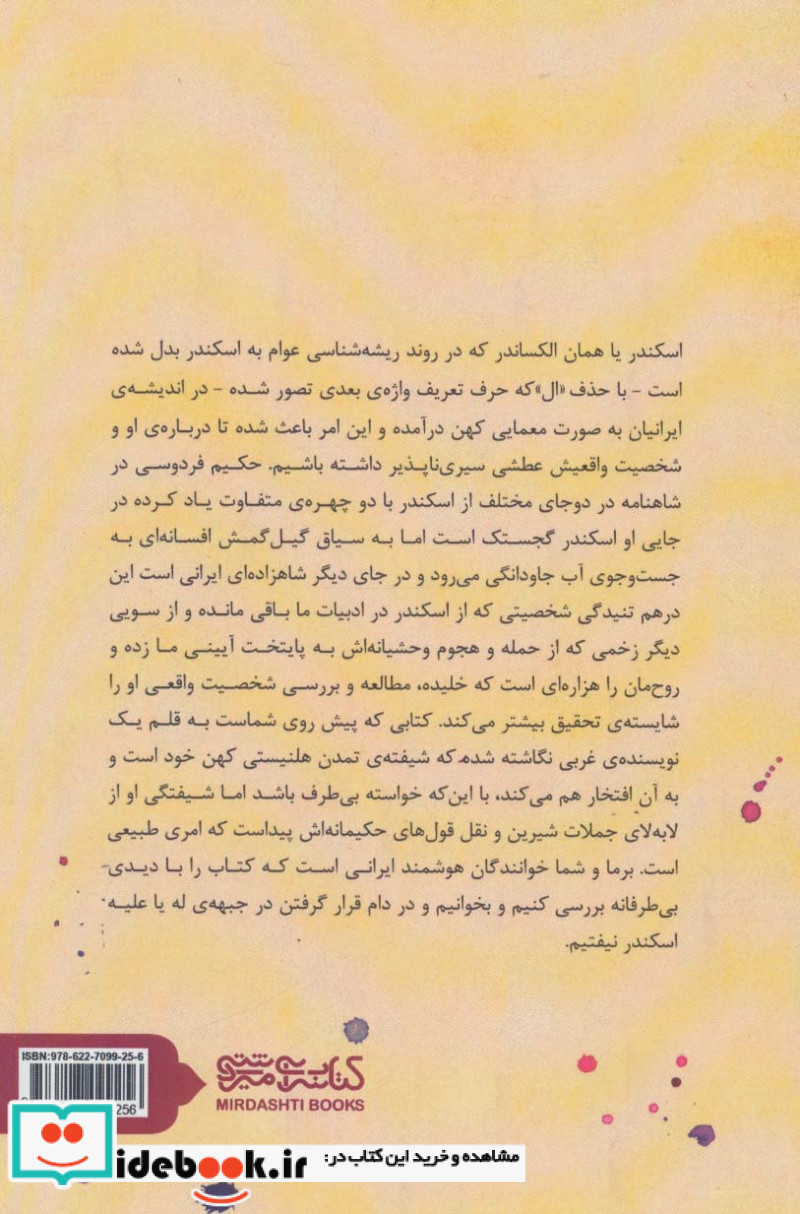 اسکندر یا همان الکساندر که در روند ریشه‌شناسی عوام به اسکندر بدل شده
است - با حذف «ال»که حرف تعریف واژه‌ی بعدی تصور شده - در اندیشه‌ی
ایرانیان به صورت معمایی کهن درآمده و این امر باعث شده تا درباره‌ی او و
شخصیت واقعیش عطشی سیری‌ناپذیر داشته باشیم. حکیم فردوسی در
شاهنامه در دوجای مختلف از اسکندر با دو چهره‌ی متفاوت یاد کرده در
جایی او اسکندر گجستک است اما به سیاق گیل‌گمش افسانه‌ای به
جست‌وجوی آب جاودانگی می‌رود و در جای دیگر شاهزاده‌ای ایرانی است این
درهم تنیدگی شخصیتی که از اسکندر در ادبیات ما باقی مانده و از سویی
دیگر زخمی که از حمله و هجوم وحشیانه‌اش به پایتخت آیینی ما زده و
روح‌مان را هزاره‌ای است که خلیده، مطالعه و بررسی شخصیت واقعی او را
شایسته‌ی تحقیق بیشتر می‌کند. کتابی که پیش روی شماست به قلم یک
نویسنده‌ی غربی نگاشته شده که شیفته‌ی تمدن هلنیستی کهن خود است و
به آن افتخار هم می‌کند، با این‌که خواسته بی‌طرف باشد اما شیفتگی او از
لابه‌لای جملات شیرین و نقل قول‌های حکیمانه‌اش پیداست که امری طبیعی
است. برما و شما خوانندگان هوشمند ایرانی است که کتاب را با دیدی
بی‌طرفانه بررسی کنیم و بخوانیم و در دام قرار گرفتن در جبهه‌ی له یا علیه
اسکندر نیفتیم.
ISBN:978-622-7099-25-6
256
کتابسرای میردشتی
MIRDASHTI BOOKS
مشاهده و خرید این کتاب در:
idebook.ir